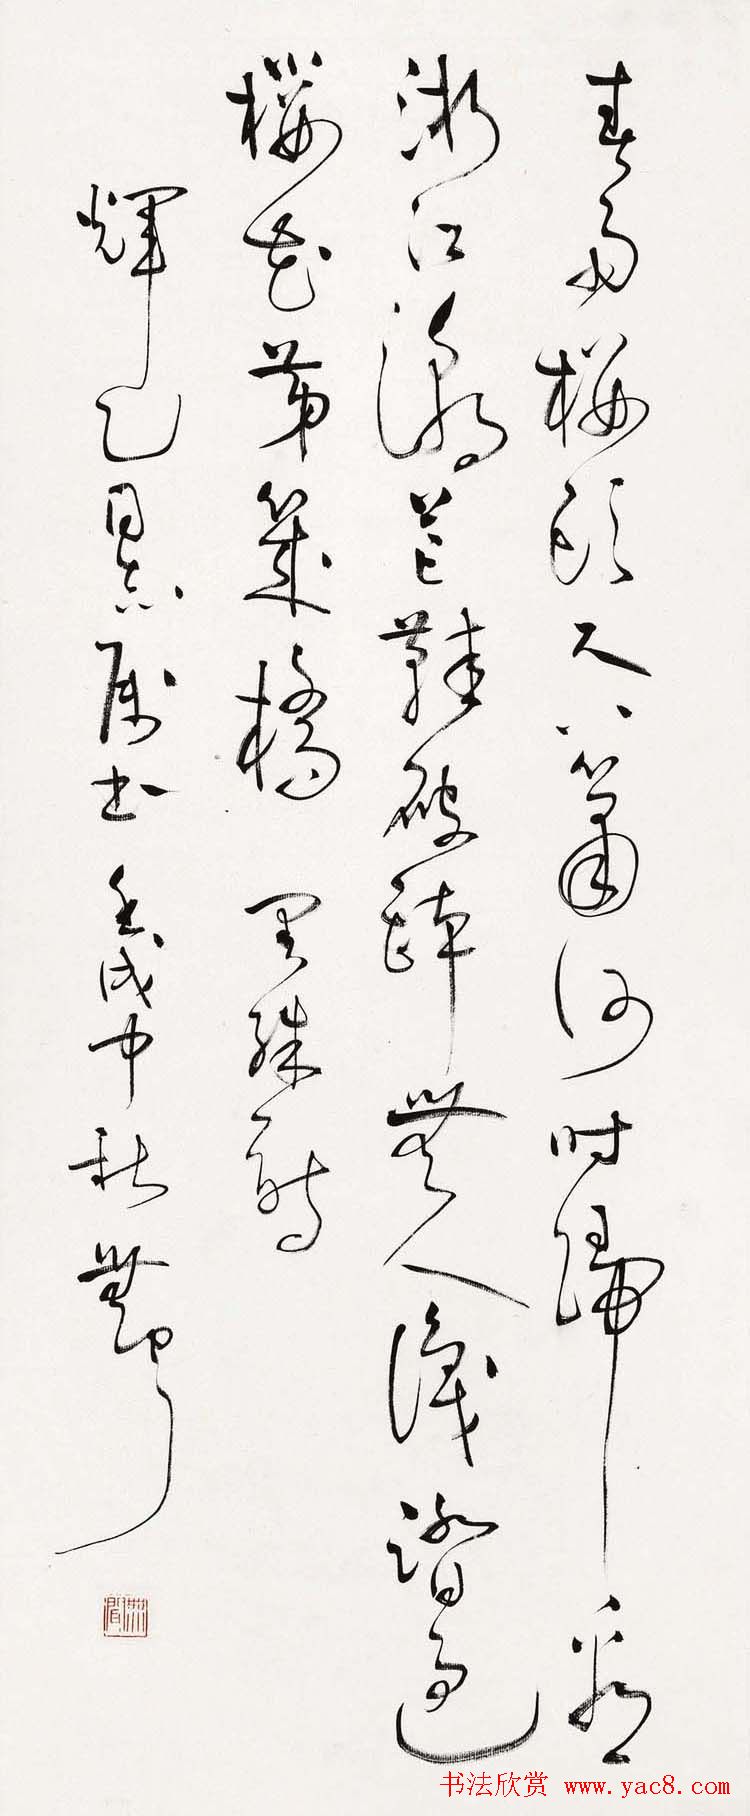 春雨楼头尺八箫何时归看
浙江潮芒鞋破钵无人识踏过
樱花第几桥 曼殊诗
辉乙同志属书 壬戌中秋 无闻
无闻
书法欣赏 www.yac8.com